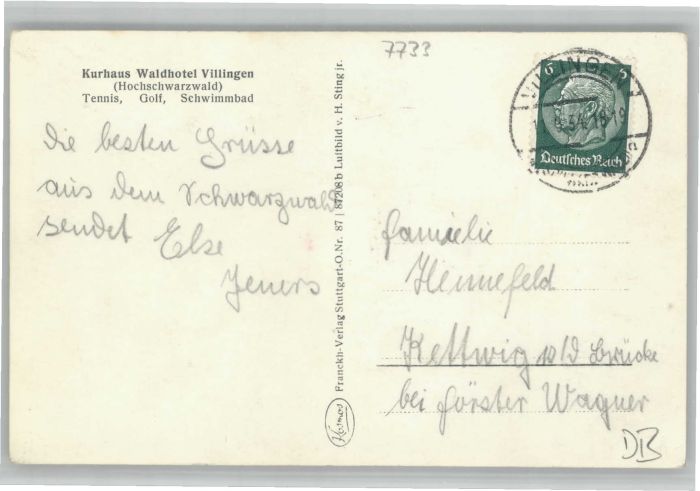 7733
Kurhaus Waldhotel Villingen
(Hochschwarzwald)
Tennis, Golf, Schwimmbad
Die besten Grüsse
aus dem Schwarzwald
sendet Else
Jeners
Franckh-Verlag Stuttgart-O.Nr. 87 | 87208b Luftbild v. H. Sting jr.
Kosmos
6 6
Deutsches Reich
VILLINGEN
34.18-19
Familie
Hennefeld
Kettwig a/d Brücke
bei Förster Wagner
DB